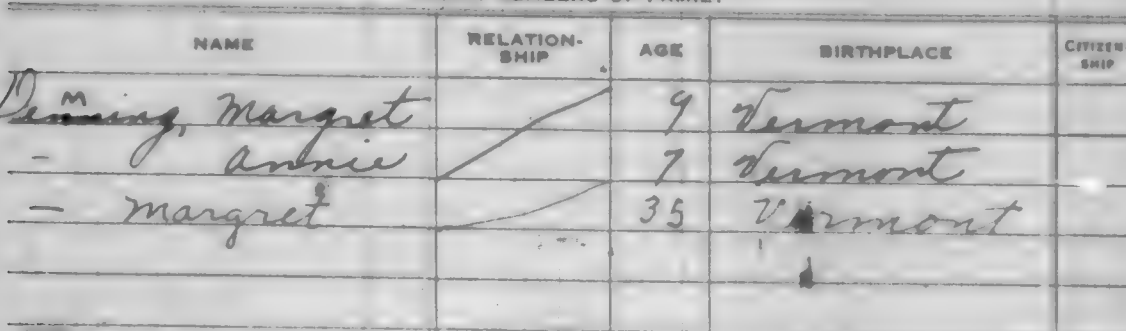 NAME RELATION-SHIP AGE BIRTHPLACE CITIZEN SHIP
Deming, Margret 9 Vermont
- Annie 7 Vermont
- Margret 35 Vermont